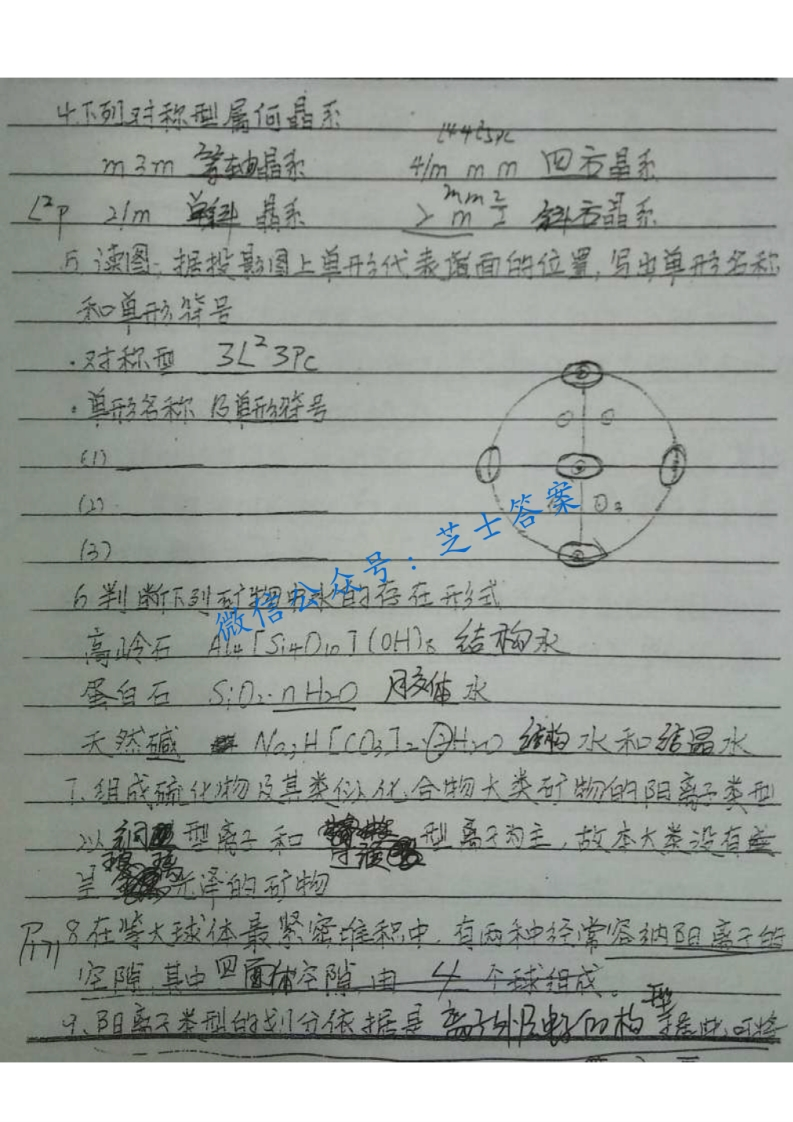 4.下列对称型属何晶系
L44L25PC
m3m 等轴晶系 4/m m m 四方晶系
L²P 2/m 单斜 晶系 mm2 斜方晶系
5.读图:据投影图上单形代表晶面的位置,写出单形名称
和单形符号
·对称型 3L²3PC
·单形名称及单形符号
(1)
(2)
(3)
微信公众号:芝士答案
6.判断下列矿物中水的存在形式
高岭石 Al4[Si4O10](OH)8 结构水
蛋白石 SiO2·nH2O 胶体水
天然碱 Na3H[CO3]2·2H2O 结构水和结晶水
7.组成硫化物及其类似化合物大类矿物的阳离子类型
以铜型离子和 过渡型离子为主,故本大类没有
呈玻璃光泽的矿物
P171 8.在等大球体最紧密堆积中,有两种经常容纳阳离子的
空隙,其中四面体空隙,由 4 个球组成。
9.阳离子类型的划分依据是 离子外层电子的构型
据此,可将